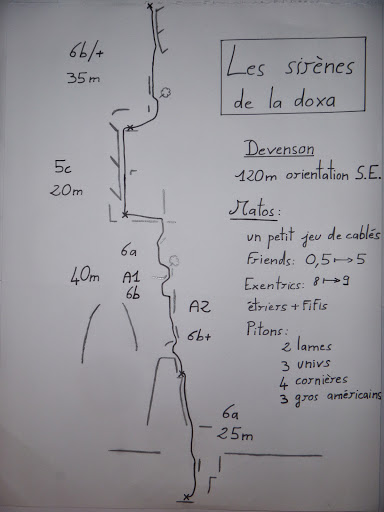 Les sirènes
de la doxa
Devenson
120m orientation S.E.
Matos:
un petit jeu de cablés
Friends: 0,5 ↦ 5
Exentrics: 8 ↦ 9
étriers + Fifis
Pitons:
2 lames
3 univs
4 cornières
3 gros américains
6b/+
35m
5c
20m
6a
40m A1
6b
A2
6b+
6a
25m